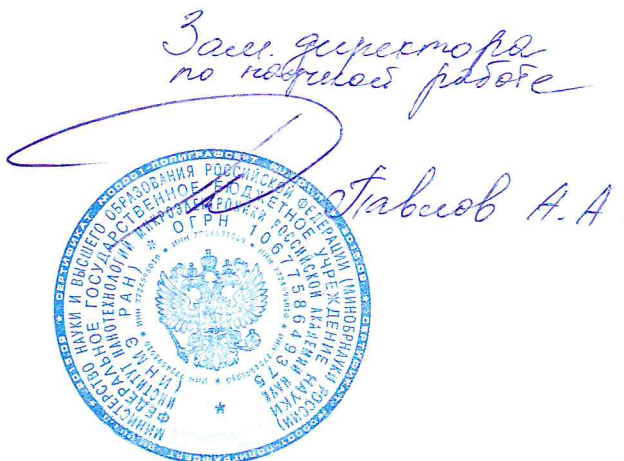 Зам. директора
по научной работе
Павлов А.А
МИНИСТЕРСТВО НАУКИ И ВЫСШЕГО ОБРАЗОВАНИЯ РОССИЙСКОЙ ФЕДЕРАЦИИ (МИНОБРНАУКИ РОССИИ)
ФЕДЕРАЛЬНОЕ ГОСУДАРСТВЕННОЕ БЮДЖЕТНОЕ УЧРЕЖДЕНИЕ НАУКИ
ИНСТИТУТ НАНОТЕХНОЛОГИЙ МИКРОЭЛЕКТРОНИКИ РОССИЙСКОЙ АКАДЕМИИ НАУК
(ИНМЭ РАН) * ОГРН 1067758649375